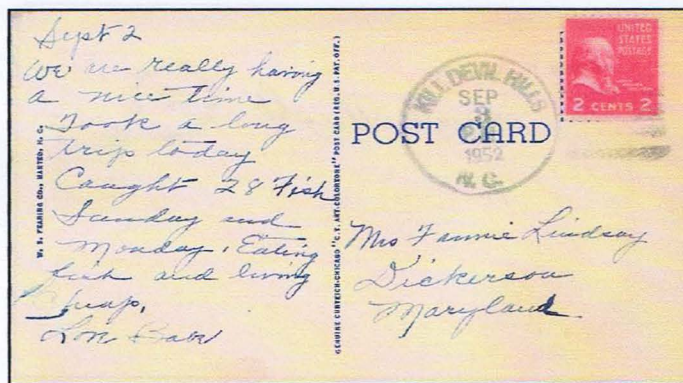 Sept 2
We are really having
a nice time
Took a long
trip today
Caught 28 Fish
Sunday and
Monday. Eating
fish and living
heap.
Love Babe
W. S. FEARING CO., MANTEO, N. C.
GENUINE CURTEICH-CHICAGO "C. T. ART-COLORTONE" POST CARD (REG. U. S. PAT. OFF.)
POST CARD
KILL DEVIL HILLS
SEP
3
1952
N. C.
UNITED
STATES
POSTAGE
2 CENTS 2
Mrs Fannie Lindsay
Dickerson
Maryland